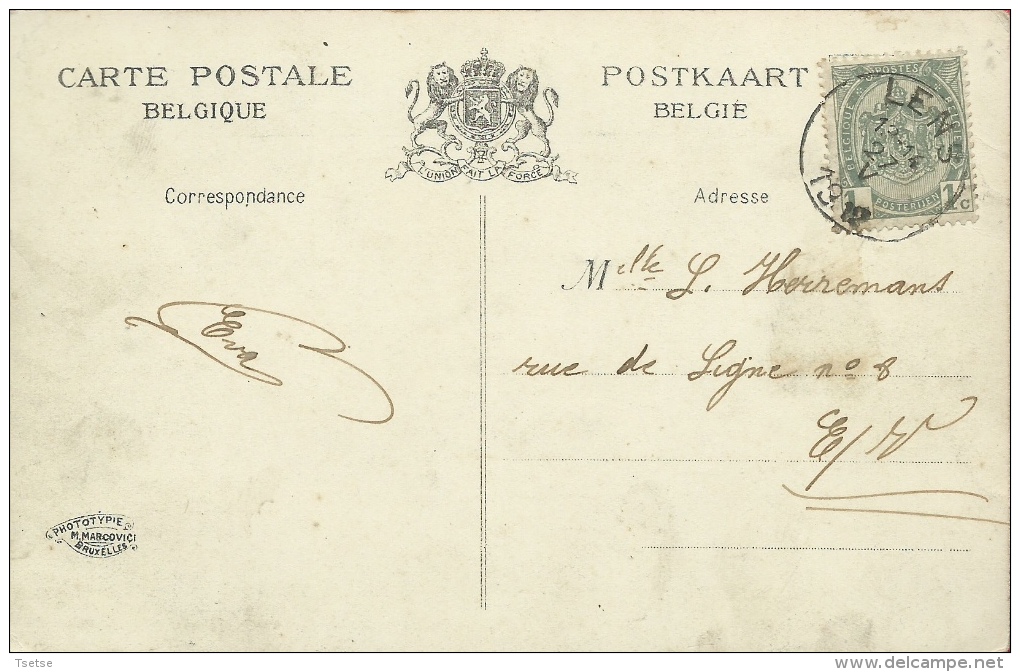 CARTE POSTALE
BELGIQUE
POSTKAART
BELGIË
L'UNION FAIT LA FORCE
Correspondance
Adresse
POSTES
BELGIQUE
BELGIË
POSTERIJEN
1 1 c
LENS
27
V
Mlle L. Herremans
rue de Ligne nº 8
E/V
Eva
PHOTOTYPIE
M. MARCOVICI
BRUXELLES
Tsetse
www.delcampe.net